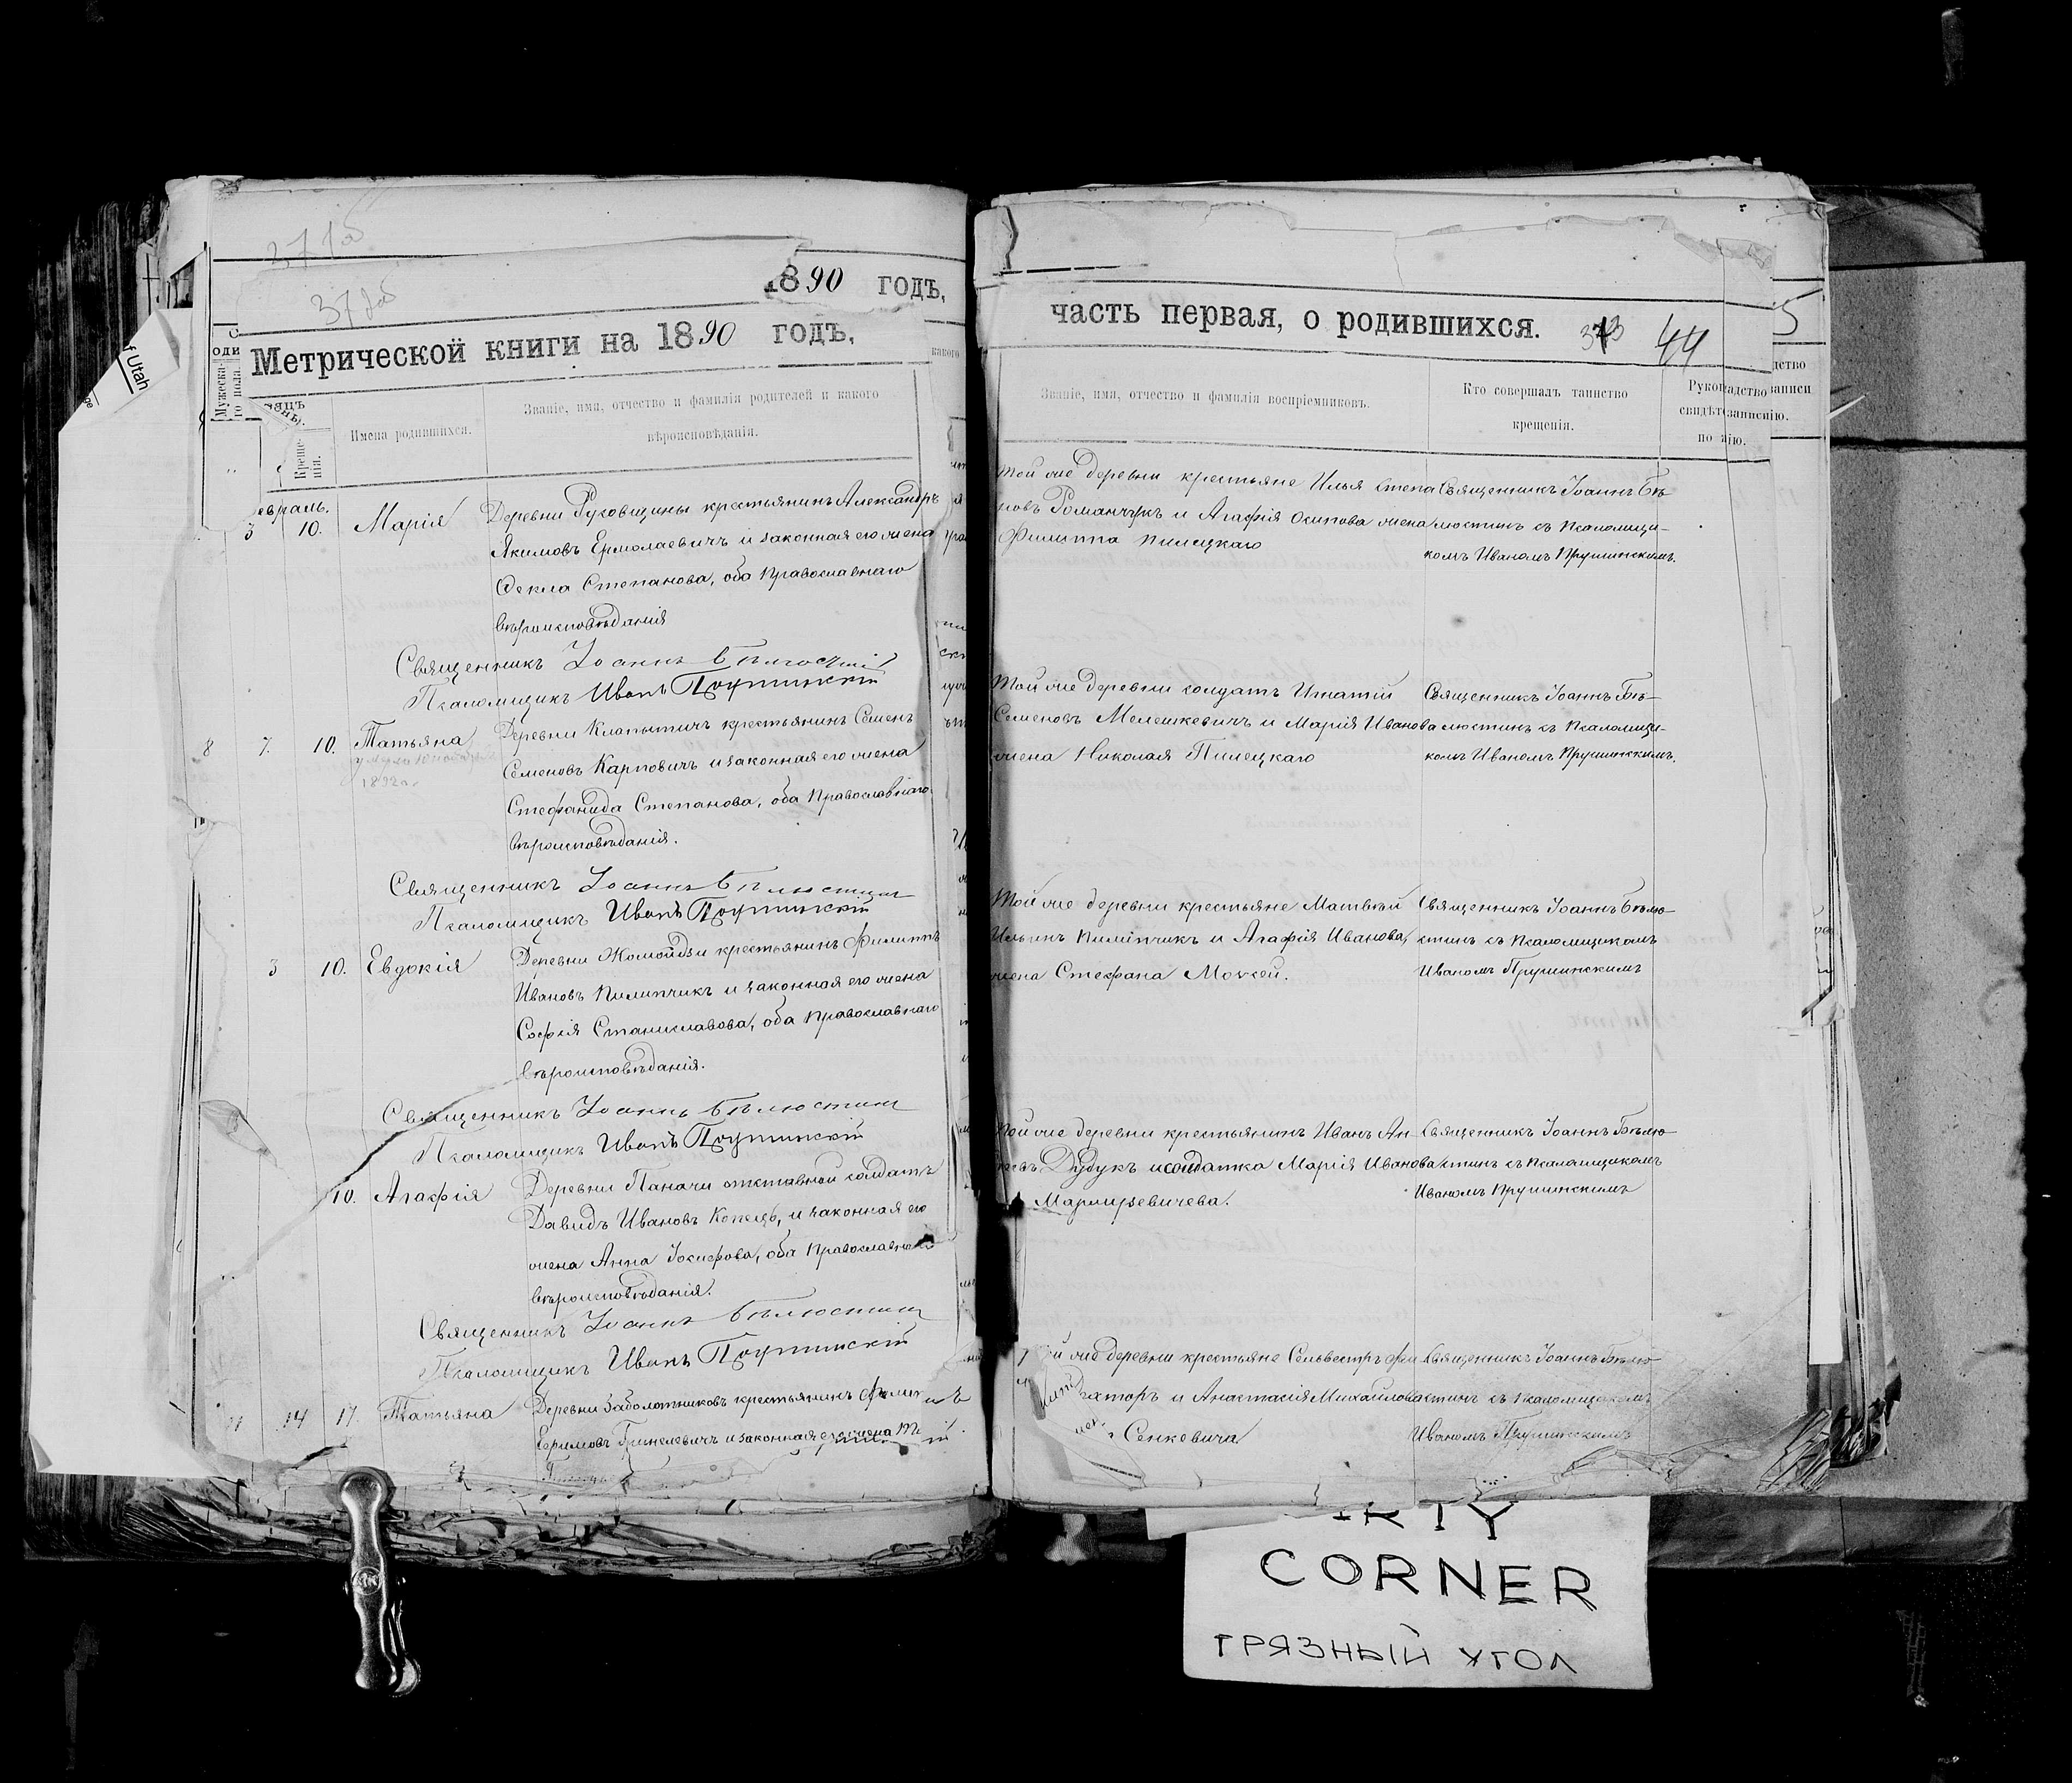 1890 годъ,
Метрической книги на 1890 годъ,
Мужеска-
го пола.
Креще-
нія.
Имена родившихся.
Званіе, имя, отчество и фамилія родителей и какого
вѣроисповѣданія.
3 10. Марія
Деревни Руковщины крестьянинъ Александръ
Якимовъ Ермолаевичъ и законная его жена
Ѳекла Степанова, оба Православнаго
вѣроисповѣданія
Священникъ Іоаннъ Бѣлюстинъ
Псаломщикъ Иванъ Прушинскій
8 7. 10. Татьяна
1892 г.
Деревни Клапытичъ крестьянинъ Семенъ
Семеновъ Карповичъ и законная его жена
Стефанида Степанова, оба Православнаго
вѣроисповѣданія.
Священникъ Іоаннъ Бѣлюстинъ
Псаломщикъ Иванъ Прушинскій
3 10. Евдокія
Деревни Жомойдзи крестьянинъ Филиппъ
Ивановъ Пилипчикъ и законная его жена
Софія Станиславова, оба Православнаго
вѣроисповѣданія.
Священникъ Іоаннъ Бѣлюстинъ
Псаломщикъ Иванъ Прушинскій
10. Агафія
Деревни Паначи отставной солдатъ
Давидъ Ивановъ и законная его
жена Анна Іосифова, оба Православнаго
вѣроисповѣданія.
Священникъ Іоаннъ Бѣлюстинъ
Псаломщикъ Иванъ Прушинскій
14 17. Татьяна
Деревни Заболотниковъ крестьянинъ Филиппъ
Ефимовъ Гринцевичъ и законная его жена
часть первая, о родившихся. 373 44
Званіе, имя, отчество и фамилія воспріемниковъ.
Кто совершалъ таинство
крещенія.
Той же деревни крестьяне Илья Степа
новъ Романчукъ и Агафія Осипова жена
Филиппа Пилецкаго
Священникъ Іоаннъ Бѣ
люстинъ съ Псаломщи-
комъ Иваномъ Прушинскимъ.
Той же деревни солдатъ Игнатій
Семеновъ Мелешкевичъ и Марія Иванова
жена Николая Пилецкаго
Священникъ Іоаннъ Бѣ-
люстинъ съ Псаломщи-
комъ Иваномъ Прушинскимъ.
Той же деревни крестьяне Матвѣй
Ильинъ Пилипчикъ и Агафія Иванова,
жена Стефана Мокей.
Священникъ Іоаннъ Бѣлю-
стинъ съ Псаломщикомъ
Иваномъ Прушинскимъ
Той же деревни крестьянинъ Иванъ Ан-
Дудукъ и солдатка Марія Иванова
Священникъ Іоаннъ Бѣлю-
стинъ съ Псаломщикомъ
Иваномъ Прушинскимъ
же деревни крестьяне Сельвестръ
и Анастасія Михайлова
Сенкевича
Священникъ Іоаннъ Бѣлю-
стинъ съ Псаломщикомъ
Иваномъ Прушинскимъ
CORNER
ГРЯЗНЫЙ УГОЛ